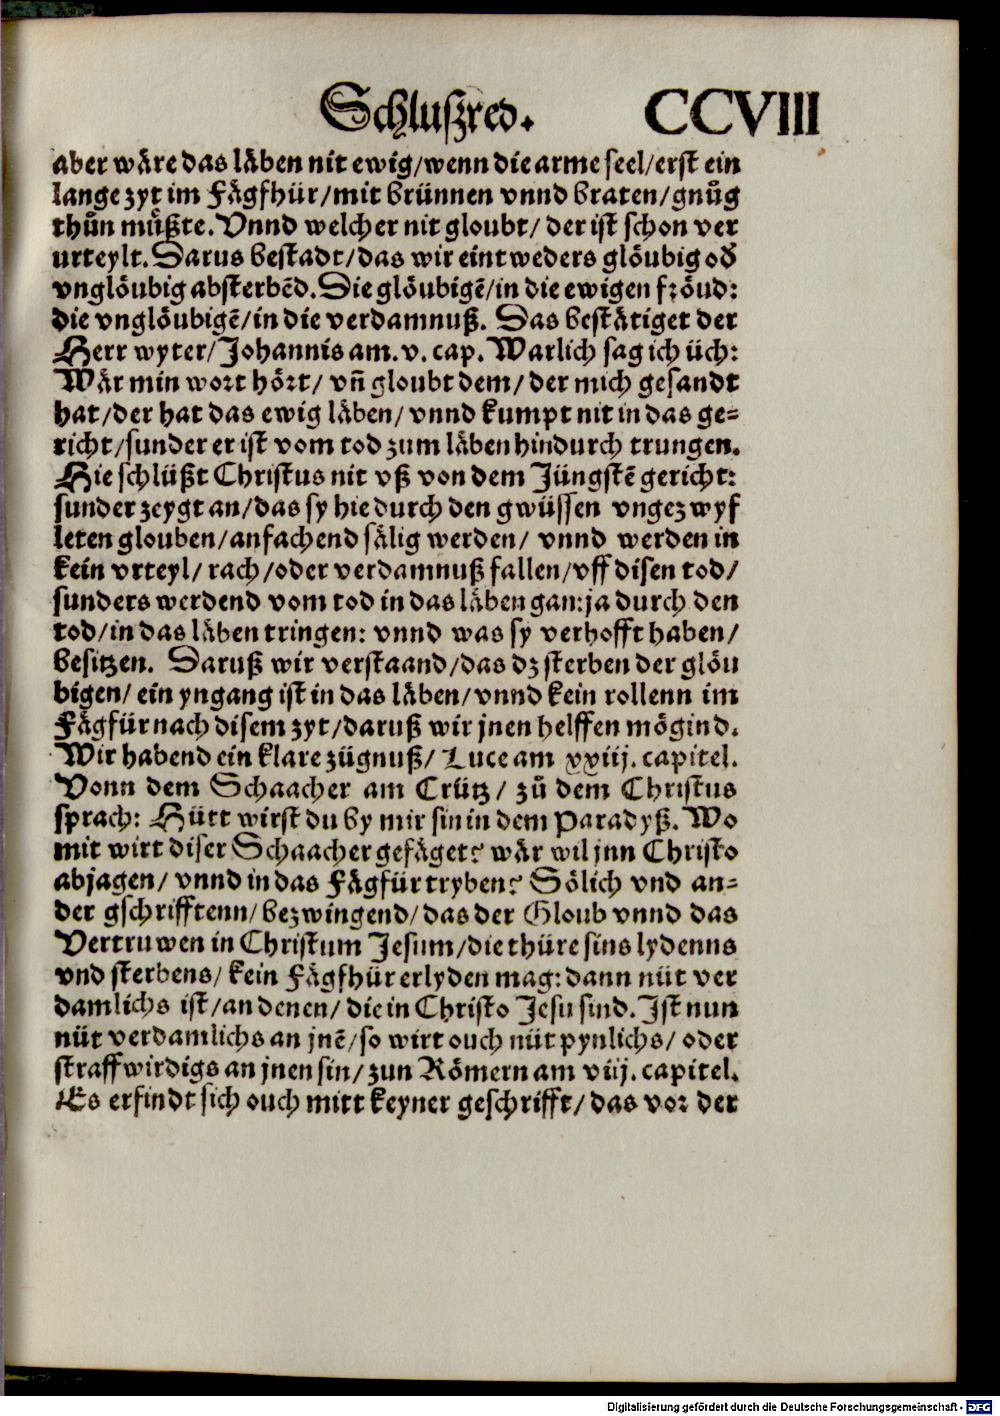 Schlußred. CCVIII
aber wäre das läben nit ewig/wenn die arme seel/erst ein
lange zyt im Fägfhür/mit brünnen vnnd braten/gnůg
thůn můßte. Vnnd welcher nit gloubt/ der ist schon ver
urteylt. Darus bestadt/das wir eintweders glöubig oď
vnglöubig absterbēd. Die glöubigē/in die ewigen fröud:
die vnglöubigē/in die verdamnuß. Das bestätiget der
Herr wyter/Johannis am. v. cap. Warlich sag ich üch:
Wär min wort hört/ vn̄ gloubt dem/ der mich gesandt
hat/der hat das ewig läben/ vnnd kumpt nit in das ge⸗
richt/sunder er ist vom tod zum läben hindurch trungen.
Hie schlüßt Christus nit vß von dem Jüngstē gericht:
sunder zeygt an/das sy hie durch den gwüssen vngezwyf
leten glouben/anfachend sälig werden/ vnnd werden in
kein vrteyl/ rach/oder verdamnuß fallen/vff disen tod/
sunders werdend vom tod in das läben gan:ja durch den
tod/in das läben tringen: vnnd was sy verhofft haben/
besitzen. Daruß wir verstaand/das dz sterben der glöu
bigen/ ein yngang ist in das läben/vnnd kein rollenn im
Fägfür nach disem zyt/daruß wir jnen helffen mögind.
Wir habend ein klare zügnuß/ Luce am xxiij. capitel.
Vonn dem Schaacher am Crütz/ zů dem Christus
sprach: Hütt wirst du by mir sin in dem Paradyß. Wo
mit wirt diser Schaacher gefäget? wär wil jnn Christo
abjagen/ vnnd in das Fägfür tryben? Sölich vnd an⸗
der gschrifftenn/bezwingend/das der Gloub vnnd das
Vertruwen in Christum Jesum/die thüre sins lydenns
vnd sterbens/ kein Fägfhür erlyden mag: dann nüt ver
damlichs ist/an denen/ die in Christo Jesu sind. Ist nun
nüt verdamlichs an jnē/so wirt ouch nüt pynlichs/ oder
straffwirdigs an jnen sin/ zun Römern am viij. capitel.
Es erfindt sich ouch mitt keyner geschrifft/das vor der
Digitalisierung gefördert durch die Deutsche Forschungsgemeinschaft - DFG